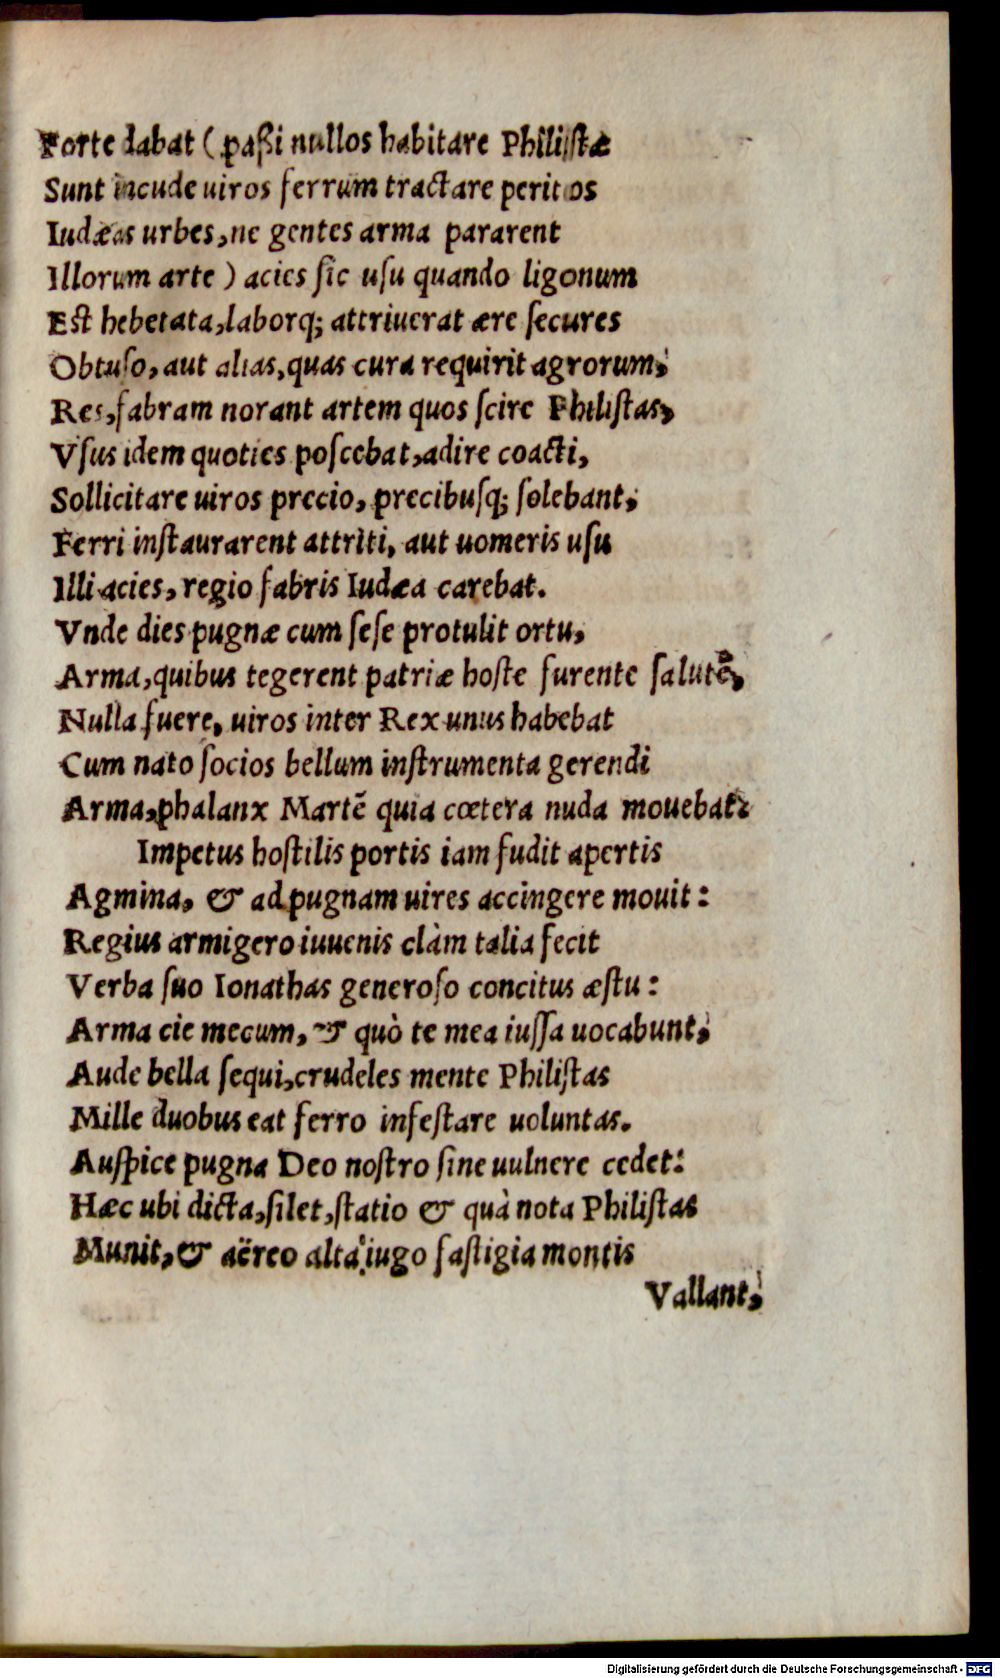 Forte dabat (paßi nullos habitare Philistæ
Sunt incude uiros ferrum tractare peritos
Iudæas urbes, ne gentes arma pararent
Illorum arte) acies sic usu quando ligonum
Est hebetata, laborq; attriuerat ære secures
Obtuso, aut alias, quas cura requirit agrorum,
Res, fabram norant artem quos scire Philistas,
Vsus idem quoties poscebat, adire coacti,
Sollicitare uiros precio, precibusq; solebant,
Ferri instaurarent attriti, aut uomeris usu
Illi acies, regio fabris Iudæa carebat.
Vnde dies pugnæ cum sese protulit ortu,
Arma, quibus tegerent patriæ hoste furente salutē,
Nulla fuere, uiros inter Rex unus habebat
Cum nato socios bellum instrumenta gerendi
Arma, phalanx Martē quia cœtera nuda mouebat.
Impetus hostilis portis iam fudit apertis
Agmina, & ad pugnam uires accingere mouit:
Regius armigero iuuenis clàm talia fecit
Verba suo Ionathas generoso concitus æstu:
Arma cie mecum, & quò te mea iussa uocabunt,
Aude bella sequi, crudeles mente Philistas
Mille duobus eat ferro infestare uoluntas.
Auspice pugna Deo nostro sine uulnere cedet:
Hæc ubi dicta, silet, statio & quà nota Philistas
Munit, & aëreo alta iugo fastigia montis
Vallant,
Digitalisierung gefördert durch die Deutsche Forschungsgemeinschaft - DFG